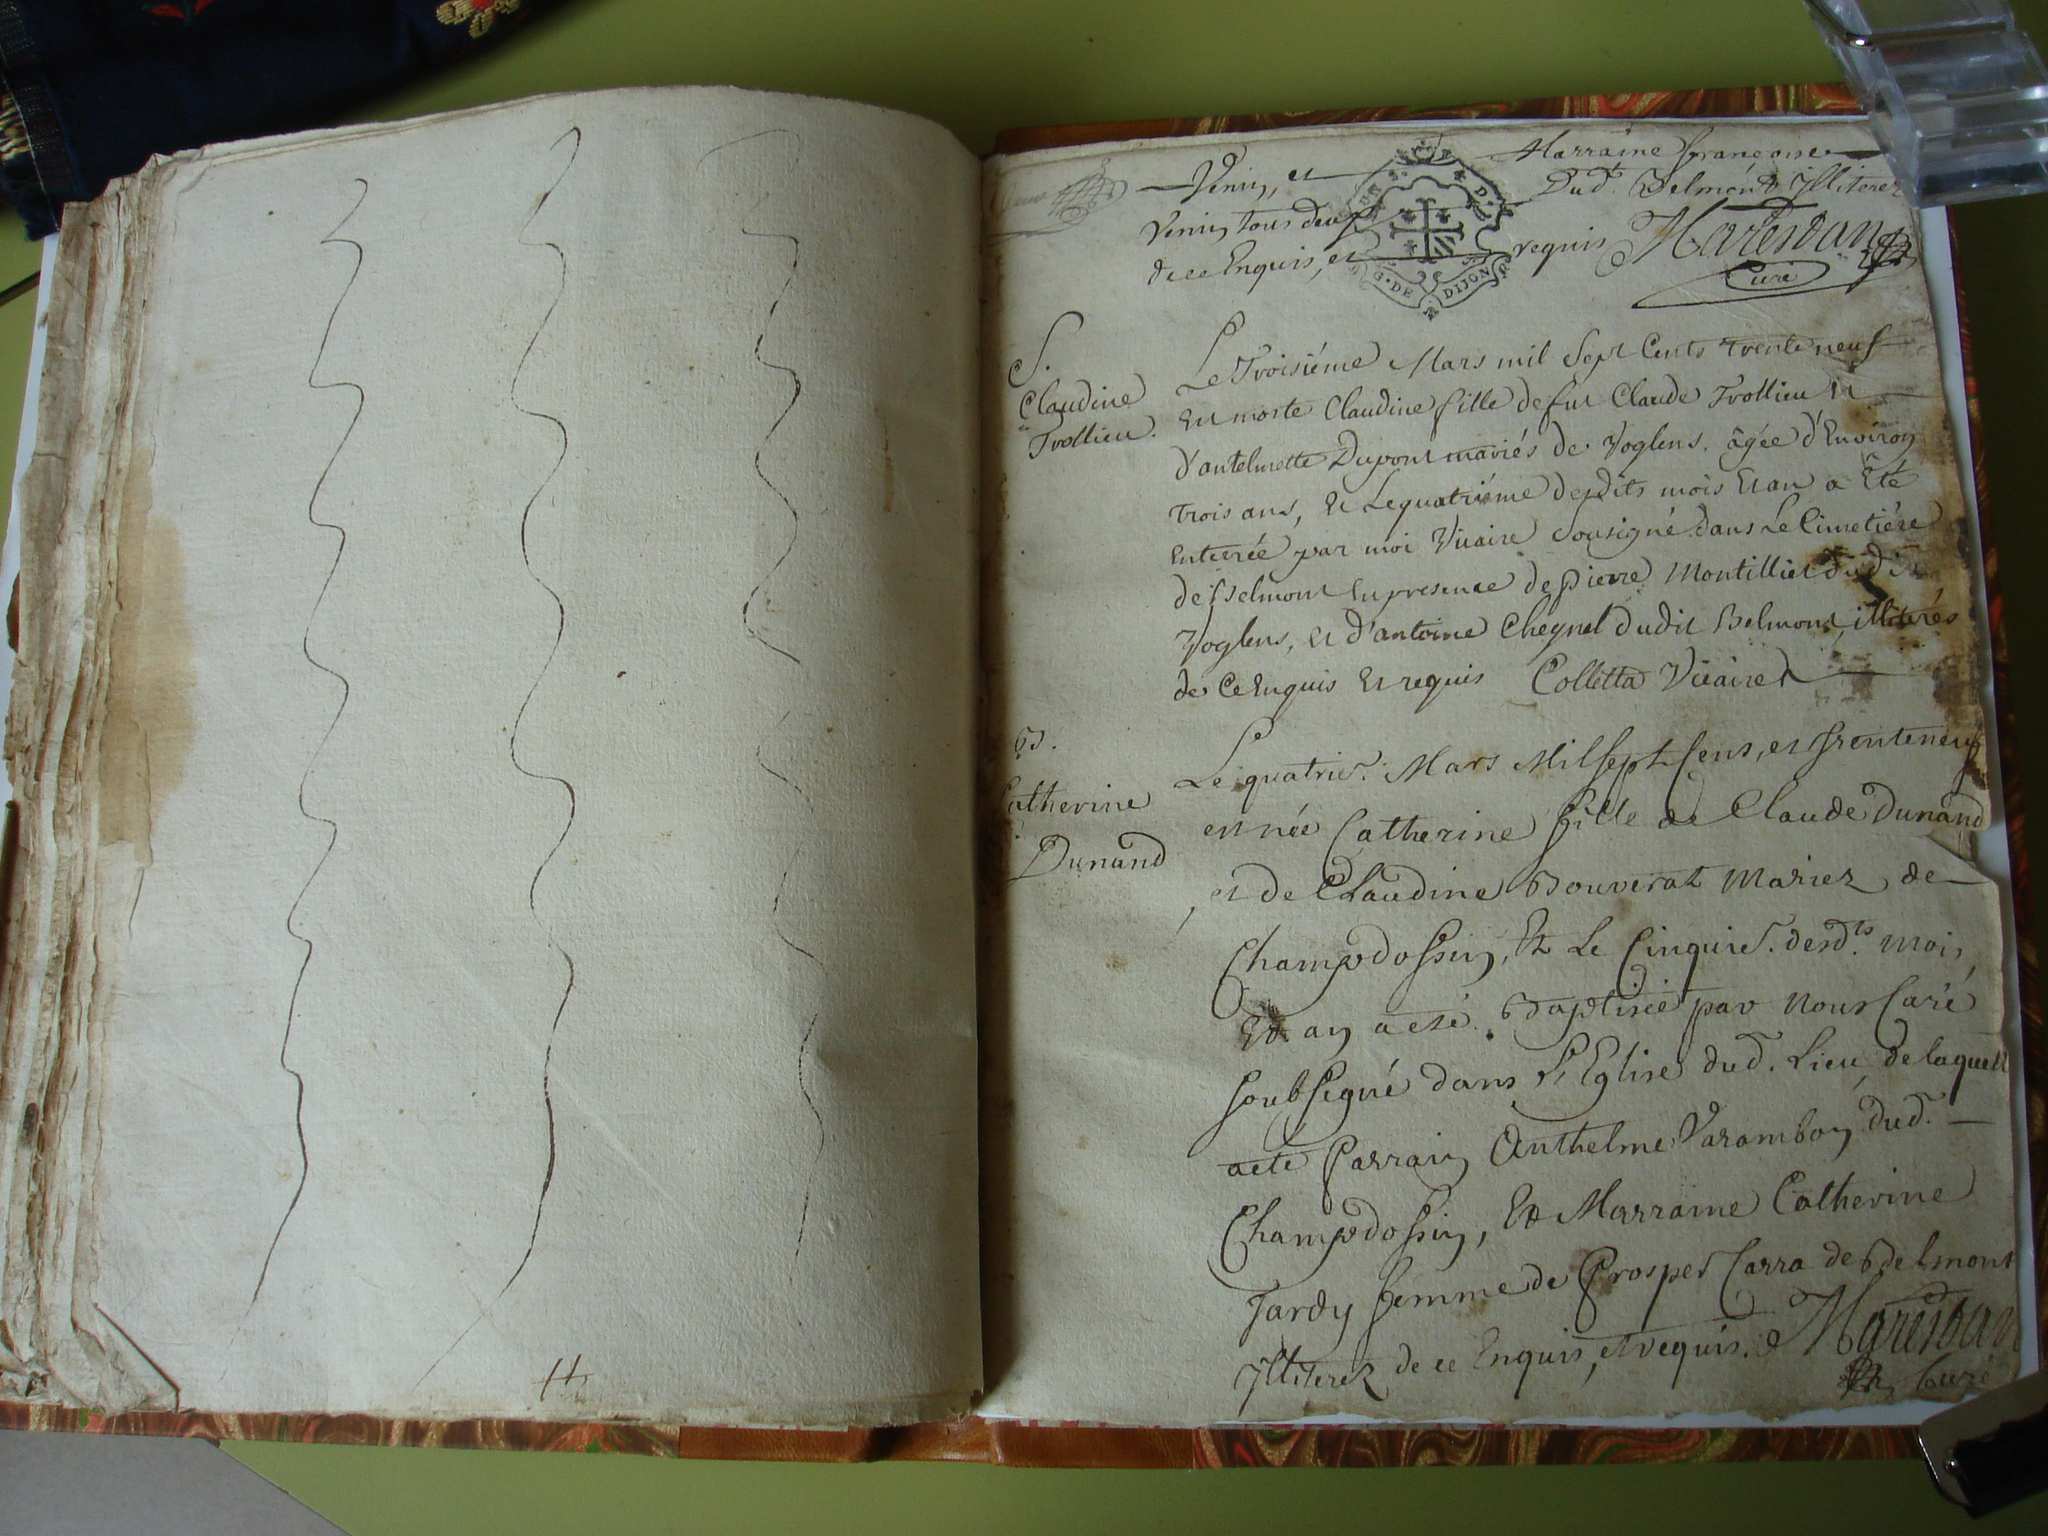 Venin, et Marraine françoise
Venin tous deux Dud.t Belmont Illiterez
de ce Enquis, et requis Marestan
Curé
G. DE DIJON
S.
Claudine
Trollieu.
Le Troisiéme Mars mil Sept Cents trente neuf
Est morte Claudine fille de fut Claude Trollieu Et
d'antelmette Dupont mariés de Voglens. âgée d'Environ
trois ans, Et Le quatriéme desdits mois Et an a Eté
Enterrée par moi Vicaire Sousigné dans Le Cimetiére
de Belmont En presence de pierre Montillet dudit
Voglens, Et d'antoine Cheynel dudit Belmont, illiterés
de Ce Enquis Et requis Colletta Vicaire
B.
Catherine
Dunand
Le quatrie. Mars Mil sept Cens, et trente neuf
est née Catherine fille de Claude Dunand
et de Claudine Bouverat Mariez de
Champdossin, Et Le Cinquie. desd.ts mois,
Et an a eté Baptisée par Nous Curé
soubsigné dans L'Eglise dud. Lieu de laquell
a eté Parrain Anthelme Varamboy dud.
Champdossin, Et Marraine Catherine
Tardy femme de Prosper Carra de Belmont
Illiterez de ce Enquis, et requis. Marestan
Curé